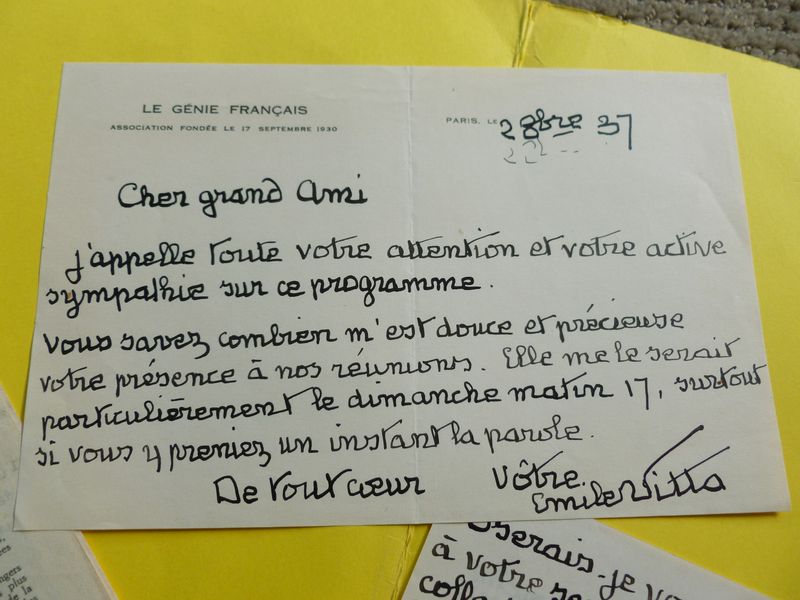 LE GÉNIE FRANÇAIS
ASSOCIATION FONDÉE LE 17 SEPTEMBRE 1930
PARIS, LE 2 8bre 37
Cher grand Ami
J'appelle toute votre attention et votre active
sympathie sur ce programme.
Vous savez combien m'est douce et précieuse
votre présence à nos réunions. Elle me le serait
particulièrement le dimanche matin 17, surtout
si vous y preniez un instant la parole.
De tout cœur
Vôtre
Emile Vitta
Oserais-je
à votre